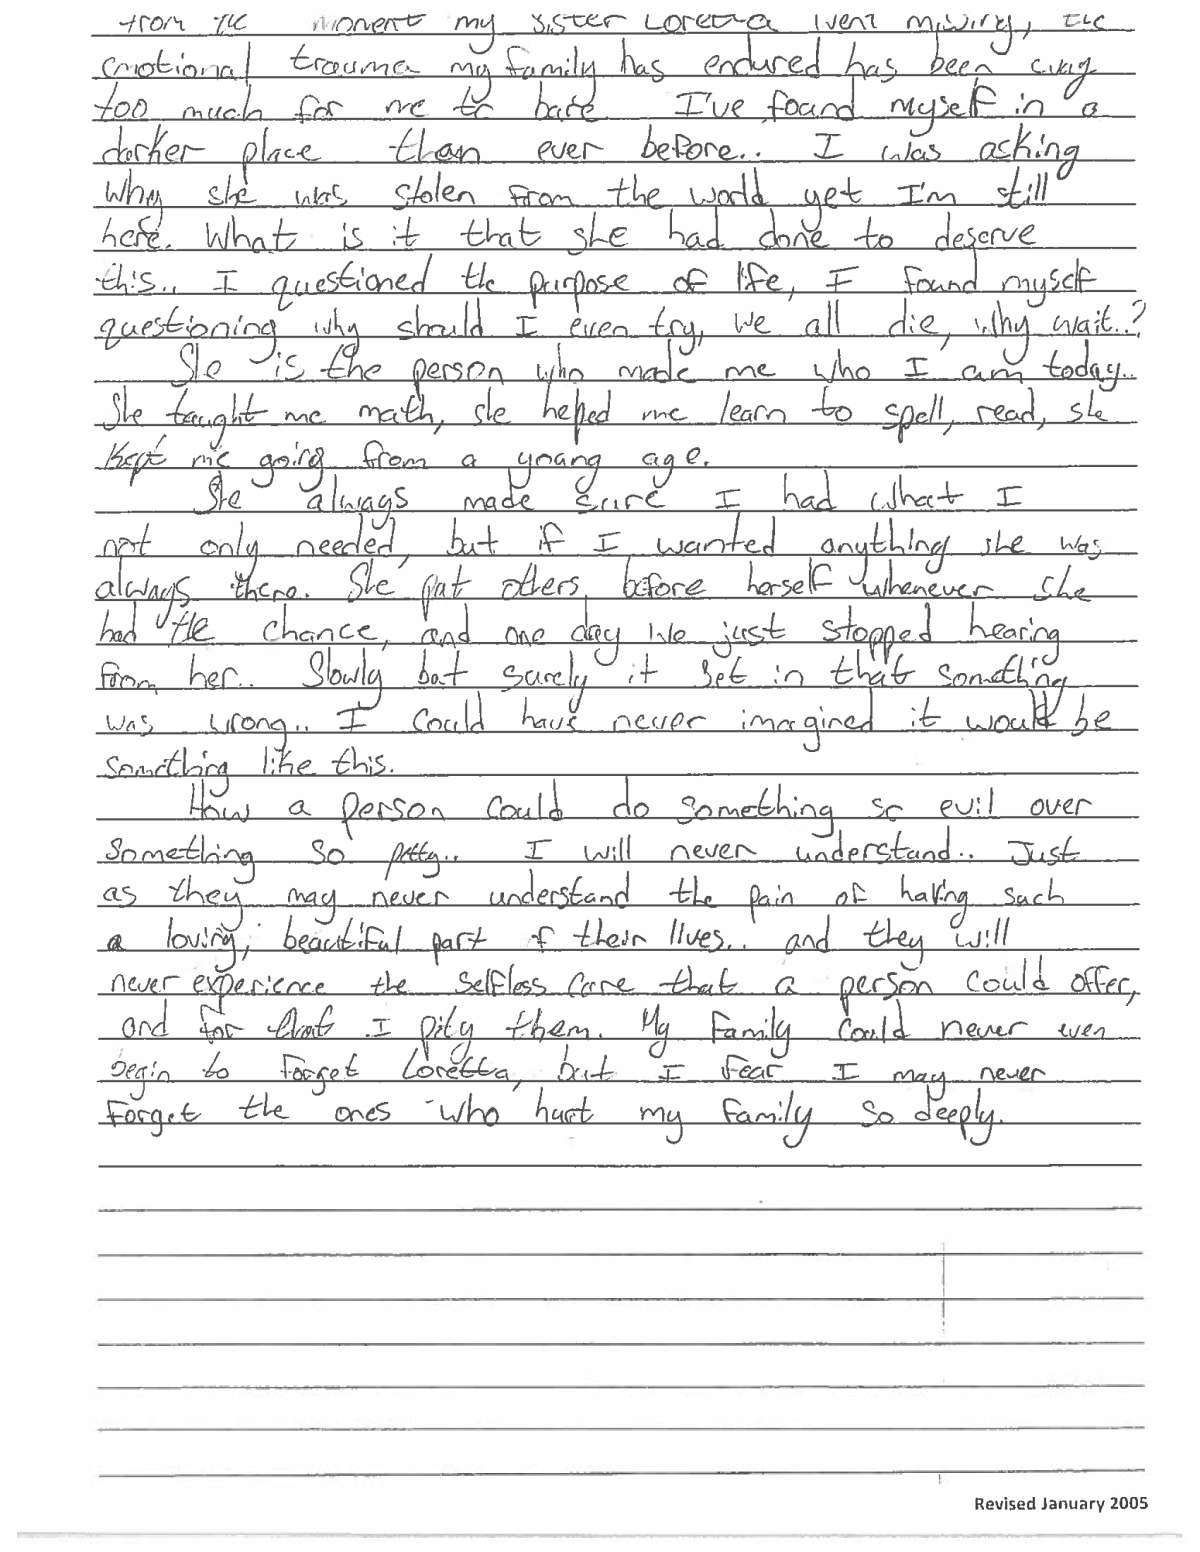 from the moment my sister Loretta went missing, the
emotional trauma my family has endured has been way
too much for me to bare I've found myself in a
darker place than ever before.. I was asking
why she was stolen from the world yet I'm still
here. What is it that she had done to deserve
this.. I questioned the purpose of life, I found myself
questioning why should I even try, we all die, why wait..?
She is the person who made me who I am today..
She taught me math, she helped me learn to spell, read, she
Kept me going from a young age.
She always made sure I had what I
not only needed, but if I wanted anything she was
always there. She put others before herself whenever she
had the chance, and one day we just stopped hearing
from her.. Slowly but surely it set in that something
was wrong.. I could have never imagined it would be
something like this.
How a person could do something so evil over
something so petty.. I will never understand.. Just
as they may never understand the pain of having such
a loving, beautiful part of their lives.. and they will
never experience the selfless care that a person could offer,
and for that I pity them. My family could never even
begin to forget Loretta, but I fear I may never
forget the ones who hurt my family so deeply.
Revised January 2005